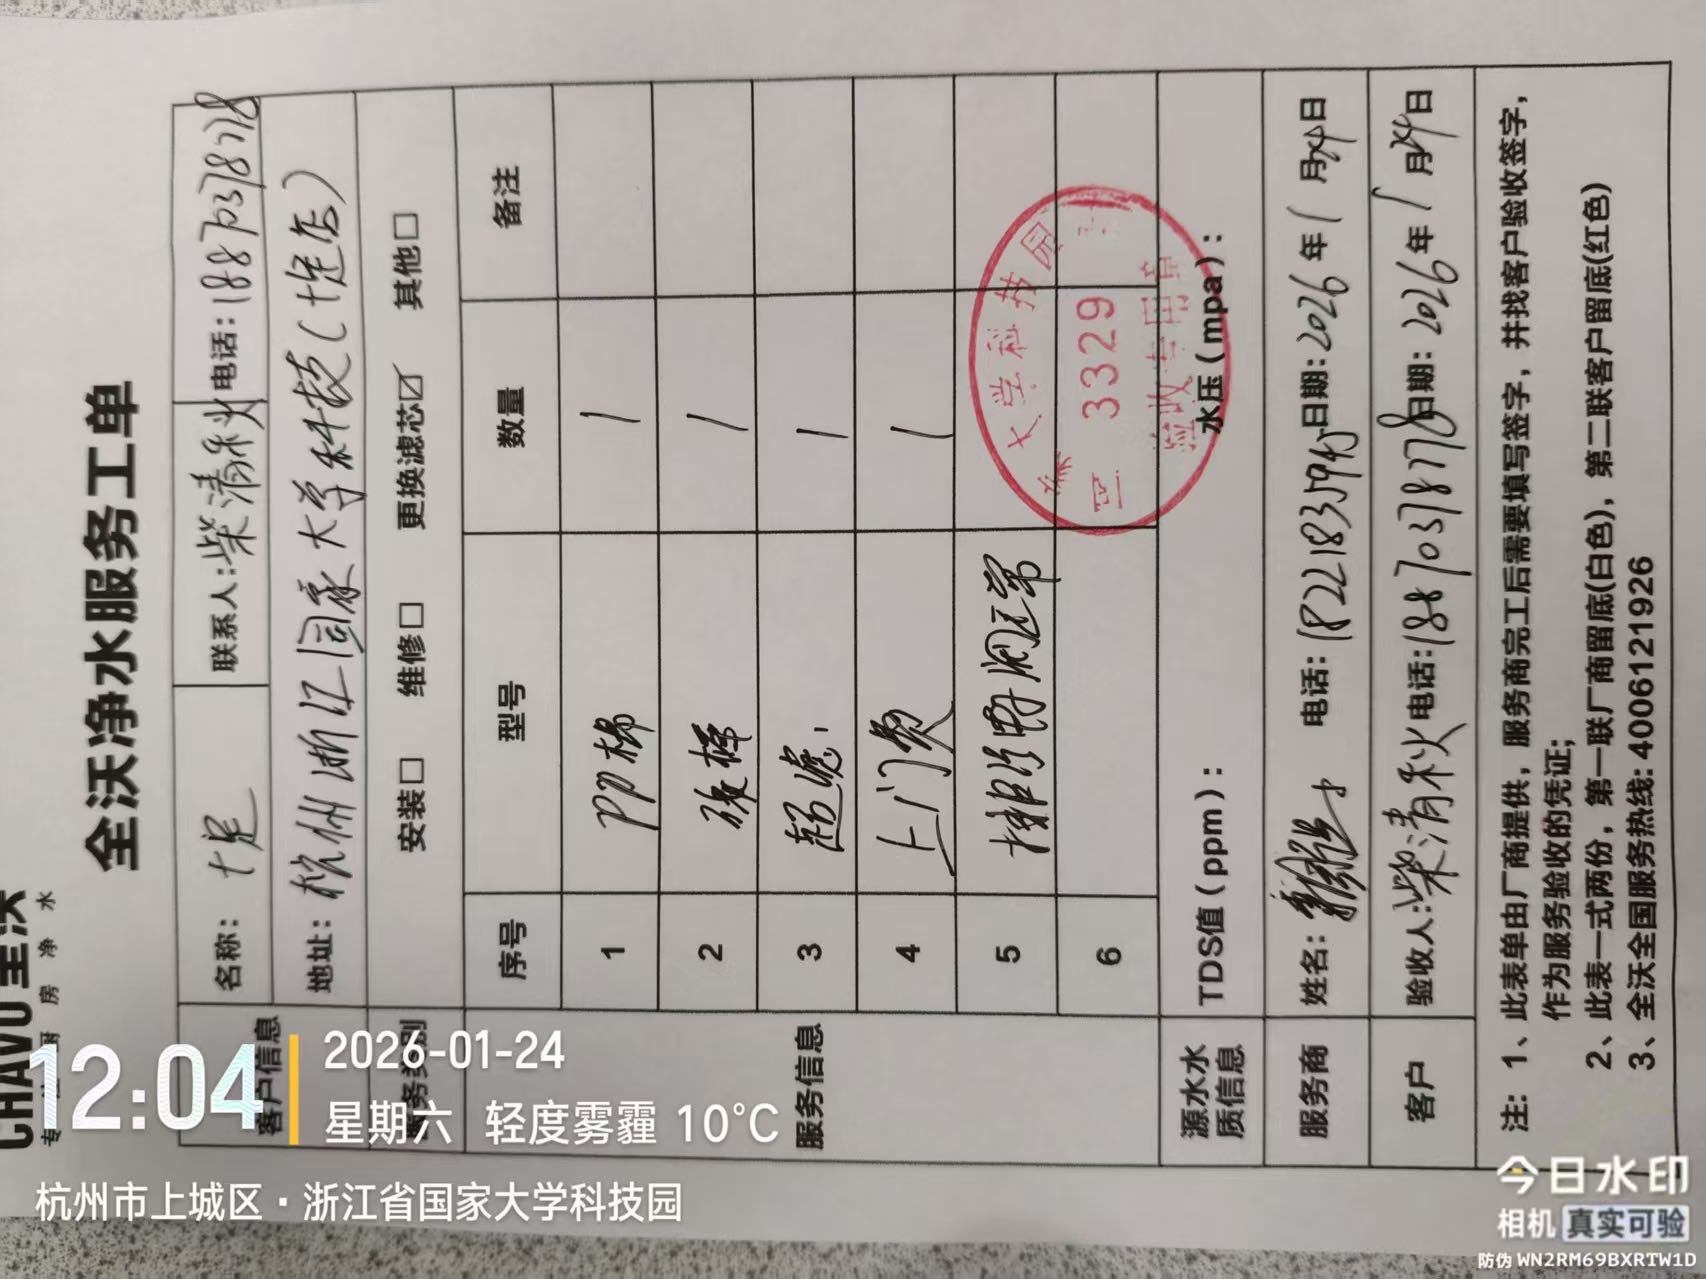 全沃净水服务工单
客户信息 名称：十足 联系人：柴清秋 电话：18870378178
地址：杭州浙江国家大学科技(十足店)
安装□ 维修□ 更换滤芯☑ 其他□
服务信息 序号 型号 数量 备注
1 PP棉 1
2 1
3 超滤 1
4 上门费 1
5 正常
6
源水水质信息 TDS值（ppm）： 水压（mpa）：
服务商 姓名： 电话： 日期：2026年1月24日
客户 验收人：柴清秋 电话：18870378178 日期：2026年1月24日
注：1、此表单由厂商提供，服务商完工后需要填写签字，并找客户验收签字，
作为服务验收的凭证；
2、此表一式两份，第一联厂商留底(白色)，第二联客户留底(红色)
3、全沃全国服务热线：4006121926
大学科技园
3329
验收专用章
12:04
2026-01-24
星期六 轻度雾霾 10℃
杭州市上城区·浙江省国家大学科技园
今日水印
相机 真实可验
防伪 WN2RM69BXRTW1D